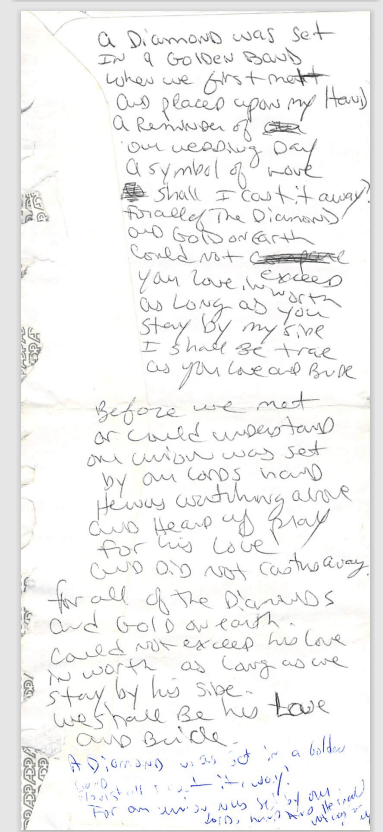 A Diamond was set
In a Golden Band
when we first met
And placed upon my Hand
A Reminder of
our wedding Day
A symbol of Love
shall I cast it away?
For all of The Diamond
and Gold on earth
Could not
your love, in exceed worth
as Long as you
stay by my side
I shall Be true
as your Love and Bride
Before we met
or could understand
our union was set
by our Lords hand
He was watching above
and Heard us pray
for his Love
And Did not cast us away.
for all of the Diamonds
and Gold on earth.
Could not exceed his Love
in worth as Long as we
stay by his side.
we shall Be his Love
and Bride.
A Diamond was set in a Golden
Band
shall I cast it away?
For our union was set by our
Lords hand And He heard